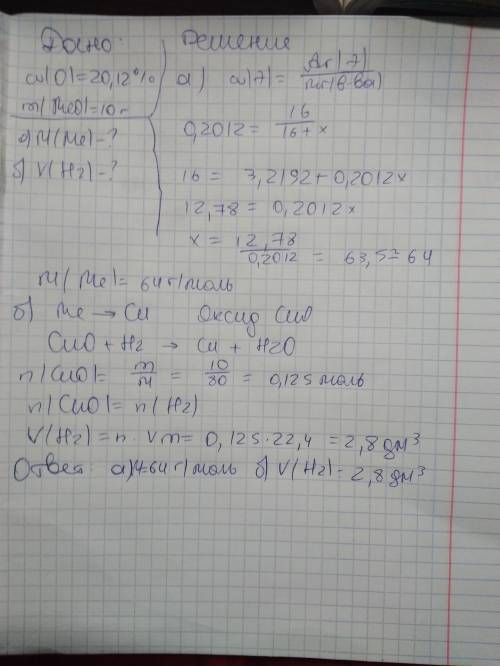 Дано:
Решение
ω(O)=20,12%
m(MeO)=10 г
а) M(Me)-?
б) V(H2)-?
а) ω(Э)= Ar(Э) / Mr(в-ва)
0,2012 = 16 / 16+x
16 = 3,2192+0,2012x
12,78 = 0,2012x
x = 12,78 / 0,2012 = 63,5≈64
M(Me)= 64 г/моль
б) Me → Cu Оксид CuO
CuO + H2 → Cu + H2O
n(CuO)= m/M = 10/80 = 0,125 моль
n(CuO)= n(H2)
V(H2)= n · Vm= 0,125·22,4 = 2,8 дм³
Ответ: а) 64 г/моль б) V(H2)= 2,8 дм³